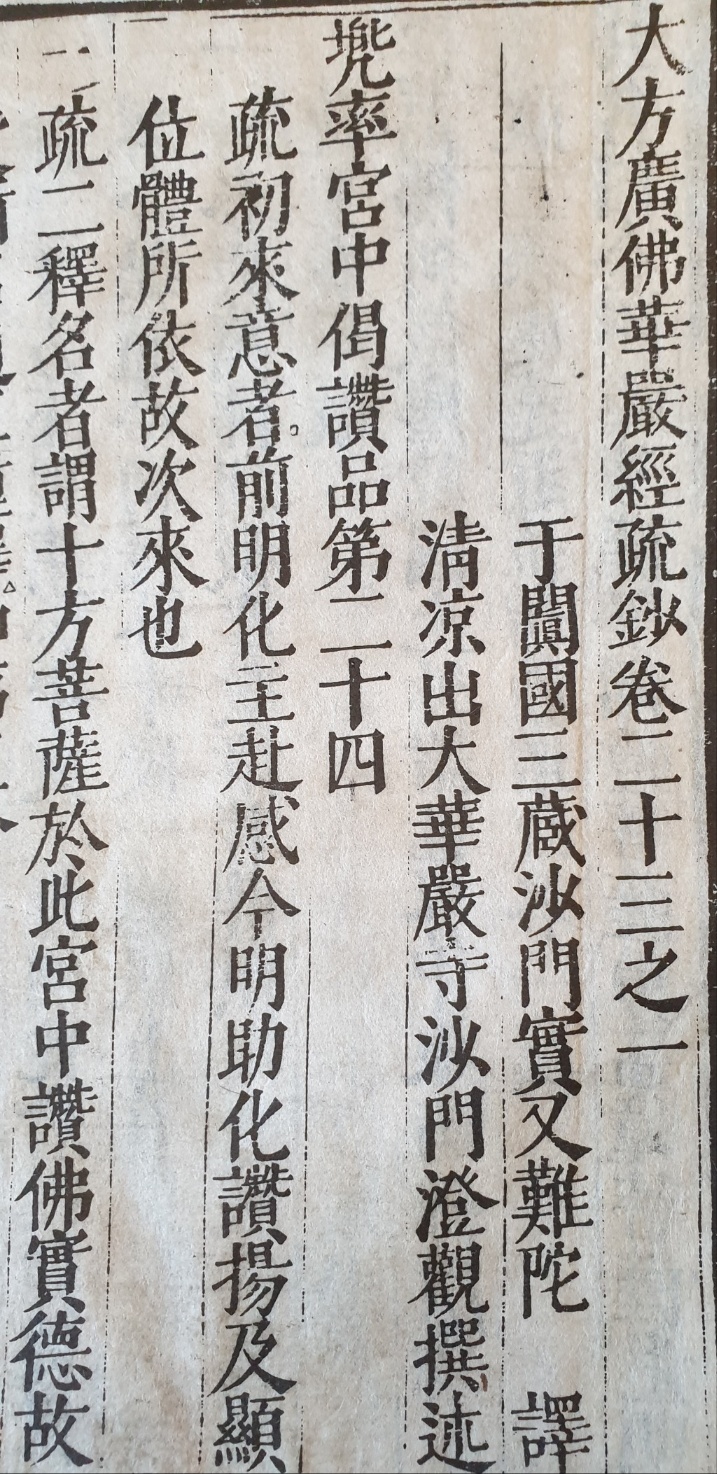 大方廣佛華嚴經疏鈔卷二十三之一
于闐國三藏沙門實又難陀　譯
清凉出大華嚴寺沙門澄觀撰述
兠率宮中偈讚品第二十四
疏初來意者。前明化主赴感今明助化讚揚及顯
位體所依故次來也
二疏二釋名者謂十方菩薩於此宮中讚佛實德故